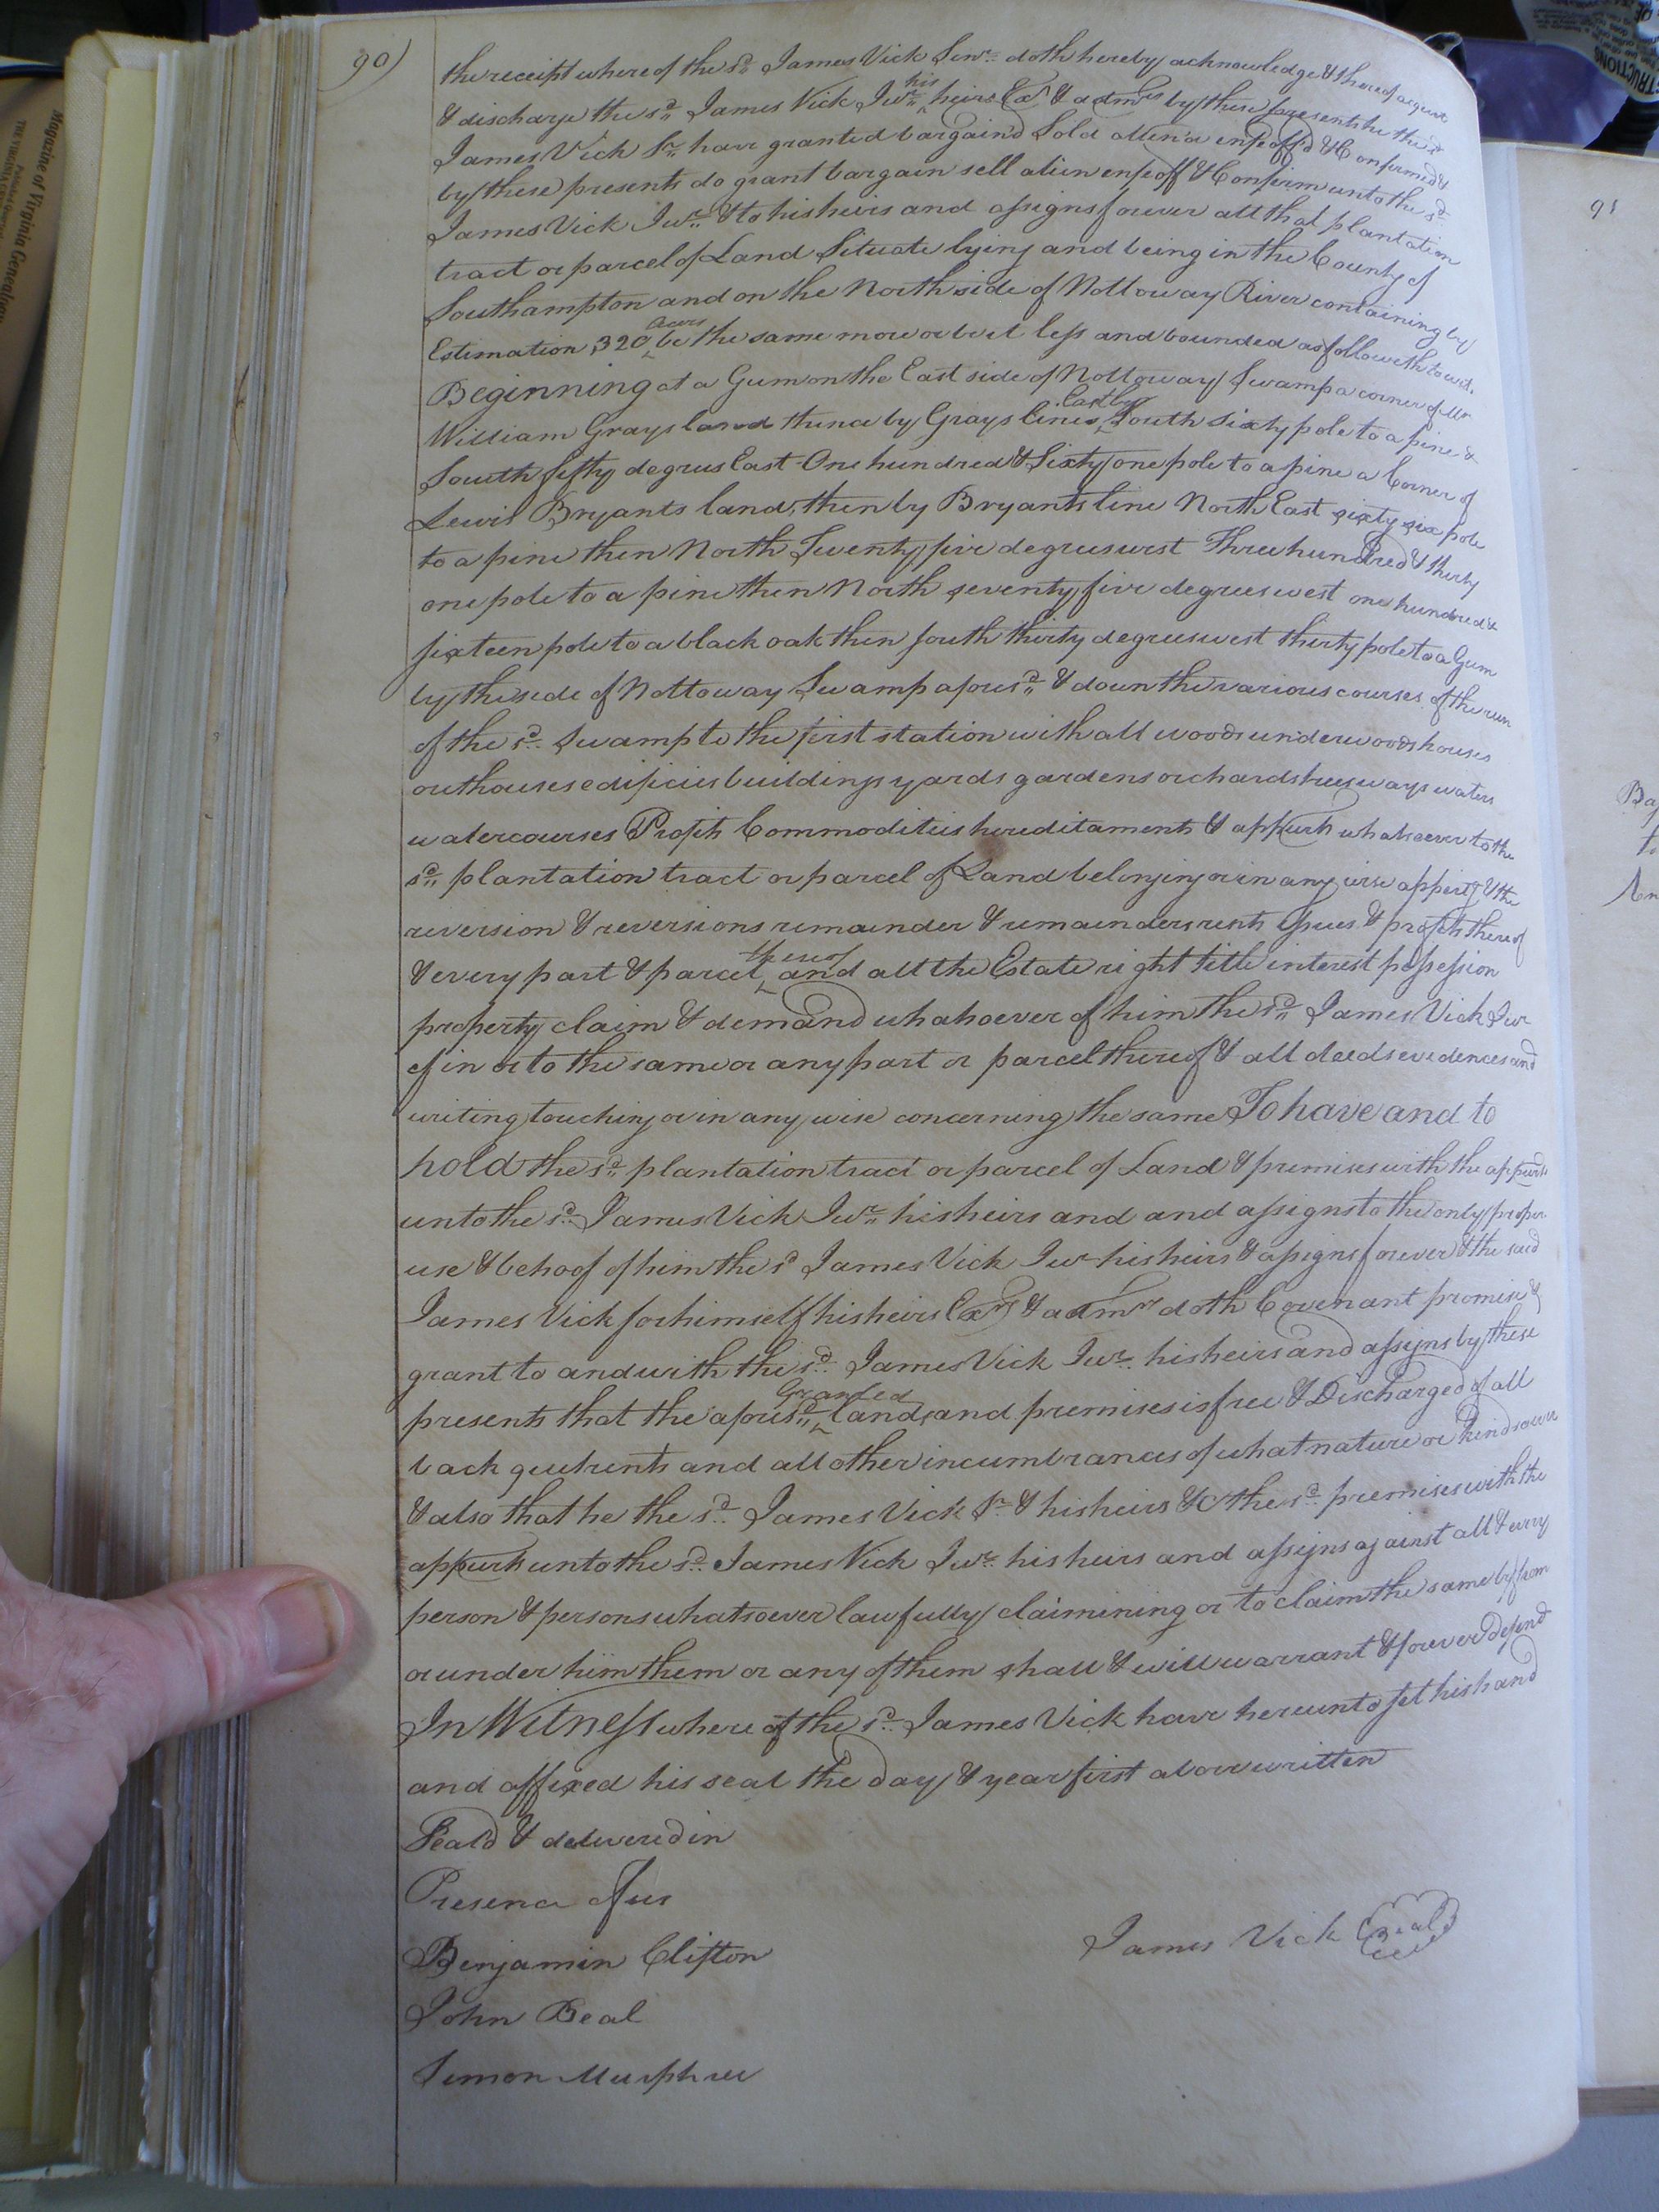 90)
the receipt whereof the sd. James Vick Senr. doth hereby acknowledge & thereof acquit
& discharge the sd. James Vick Junr. his heirs Exrs & admrs by these presents he the sd
James Vick Sr. have granted bargain'd Sold alien'd enfeoff'd & Confirmed &
by these presents do grant bargain sell alien enfeoff & Confirm unto the sd.
James Vick Junr. & to his heirs and assigns forever all that plantation
tract or parcel of Land Situate lying and being in the County of
Southampton and on the North side of Nottoway River containing by
Estimation 320 acres be the same more or less and bounded as followeth to wit.
Beginning at a Gum on the East side of Nottoway Swamp a corner of Mr
William Grays land thence by Grays lines Eastby South sixty pole to a pine &
South fifty degrees East One hundred & Sixty one pole to a pine a Corner of
Lewis Bryants land, then by Bryants line North East sixty six pole
to a pine then North Twenty five degrees west Three hundred & thirty
one pole to a pine then North seventy five degrees west one hundred &
sixteen pole to a black oak then south thirty degrees west thirty pole to a Gum
by the side of Nottoway Swamp aforesd. & down the various courses of the run
of the sd. Swamp to the first station with all woods underwoods houses
outhouses edificies buildings yards gardens orchards trees ways waters
watercourses Profits Commodities hereditaments & appurts whatsoever to the
sd. plantation tract or parcel of Land belonging or in any wise appertg & the
reversion & reversions remainder & remainders rents issues & profits thereof
& every part & parcel thereof and all the Estate right title interest possession
property claim & demand whatsoever of him the sd. James Vick Junr
of in or to the same or any part or parcel thereof & all deeds evedences and
writing touching or in any wise concerning the same To have and to
hold the sd. plantation tract or parcel of Land & premises with the appurts
unto the sd. James Vick Junr. his heirs and and assigns to the only proper
use & behoof of him the sd James Vick Junr his heirs & assigns forever & the said
James Vick for himself his heirs Exrs & admrs doth Covenant promise &
grant to and with the sd. James Vick Junr. his heirs and assigns by these
presents that the aforesd. Granted land, and premises is free & Discharged of all
back quitrents and all other incumbrances of what nature or kind soever
& also that he the sd. James Vick Sr. & his heirs &C the sd. premises with the
appurts unto the sd. James Vick Junr. his heirs and assigns against all & every
person & persons whatsoever lawfully claimining or to claim the same by from
or under him them or any of them shall & will warrant & forever defend
In Witness whereof the sd. James Vick have hereunto set his hand
and affixed his seal the day & year first above written
Seald & delivered in
Presence of us
James Vick Seal
Benjamin Clifton
John Beal
Simon Murphree
91
Magazine of Virginia Genealogy